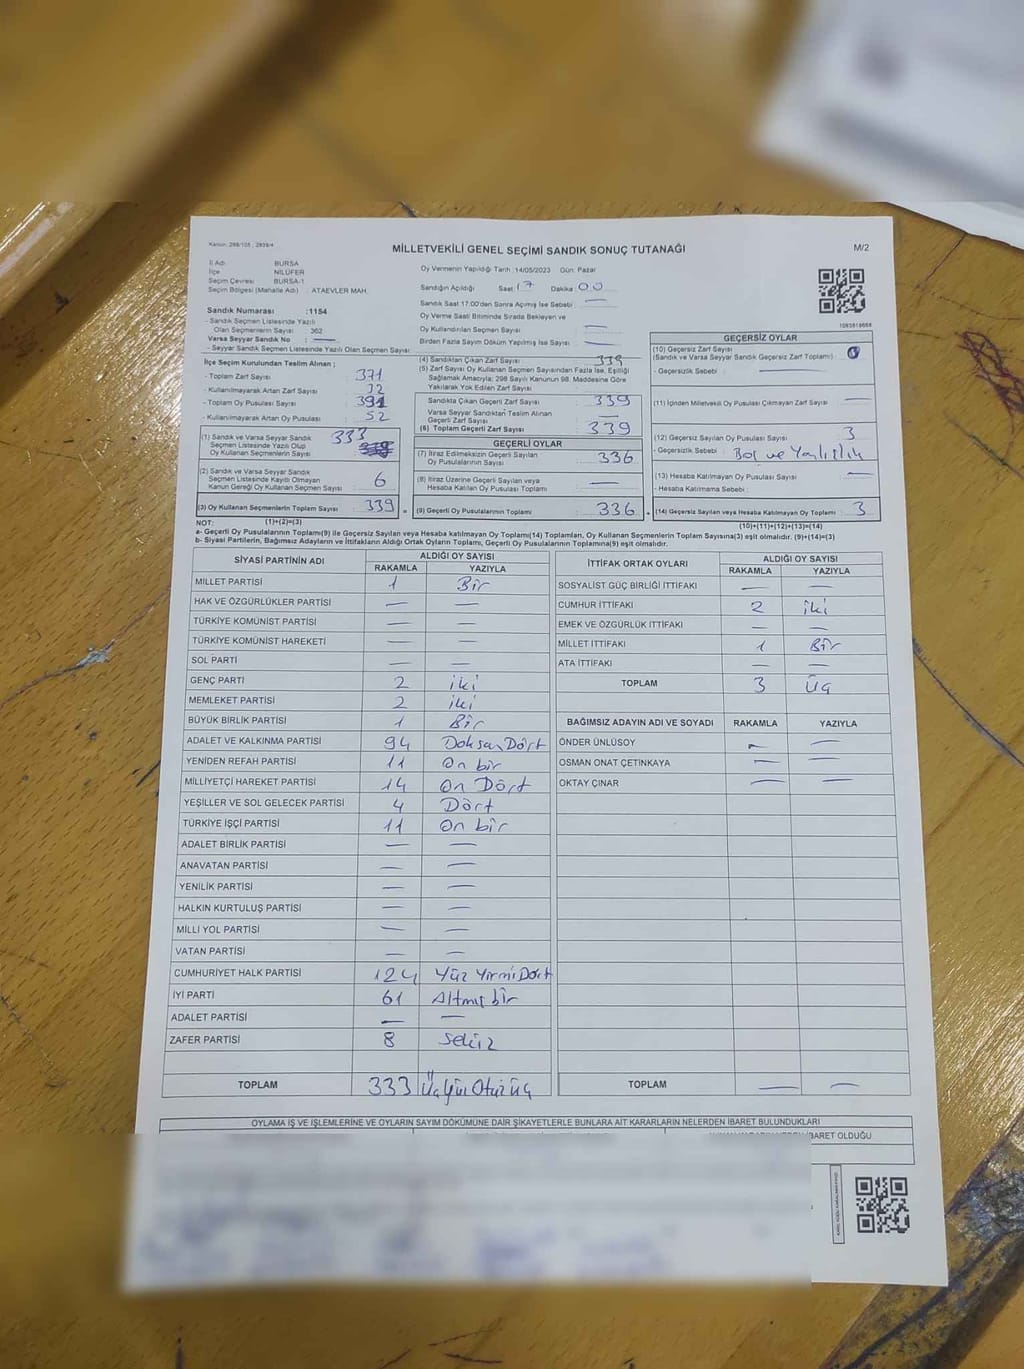 Kanun: 298/105 ; 2839/4
MİLLETVEKİLİ GENEL SEÇİMİ SANDIK SONUÇ TUTANAĞI
M/2
İl Adı BURSA
İlçe NİLÜFER
Seçim Çevresi BURSA-1
Seçim Bölgesi (Mahalle Adı) : ATAEVLER MAH.
Oy Vermenin Yapıldığı Tarih :14/05/2023 Gün: Pazar
Sandığın Açıldığı Saat : 17 Dakika : 00
Sandık Saat 17:00'den Sonra Açılmış İse Sebebi : —
Oy Verme Saati Bitiminde Sırada Bekleyen ve
Oy Kullandırılan Seçmen Sayısı : —
Birden Fazla Sayım Döküm Yapılmış İse Sayısı : —
1083818668
Sandık Numarası :1154
- Sandık Seçmen Listesinde Yazılı
Olan Seçmenlerin Sayısı : 362
Varsa Seyyar Sandık No : —
- Seyyar Sandık Seçmen Listesinde Yazılı Olan Seçmen Sayısı :
İlçe Seçim Kurulundan Teslim Alınan ;
- Toplam Zarf Sayısı : 371
- Kullanılmayarak Artan Zarf Sayısı : 32
- Toplam Oy Pusulası Sayısı : 391
- Kullanılmayarak Artan Oy Pusulası : 52
(1) Sandık ve Varsa Seyyar Sandık
Seçmen Listesinde Yazılı Olup
Oy Kullanan Seçmenlerin Sayısı : 333
(2) Sandık ve Varsa Seyyar Sandık
Seçmen Listesinde Kayıtlı Olmayan
Kanun Gereği Oy Kullanan Seçmen Sayısı : 6
(3) Oy Kullanan Seçmenlerin Toplam Sayısı : 339
(4) Sandıktan Çıkan Zarf Sayısı : 339
(5) Zarf Sayısı Oy Kullanan Seçmen Sayısından Fazla İse, Eşitliği
Sağlamak Amacıyla; 298 Sayılı Kanunun 98. Maddesine Göre
Yakılarak Yok Edilen Zarf Sayısı :
Sandıkta Çıkan Geçerli Zarf Sayısı : 339
Varsa Seyyar Sandıktan Teslim Alınan
Geçerli Zarf Sayısı : —
(6) Toplam Geçerli Zarf Sayısı : 339
GEÇERLİ OYLAR
(7) İtiraz Edilmeksizin Geçerli Sayılan
Oy Pusulalarının Sayısı : 336
(8) İtiraz Üzerine Geçerli Sayılan veya
Hesaba Katılan Oy Pusulası Toplamı : —
= (9) Geçerli Oy Pusulalarının Toplamı : 336
GEÇERSİZ OYLAR
(10) Geçersiz Zarf Sayısı
(Sandık ve Varsa Seyyar Sandık Geçersiz Zarf Toplamı) :
- Geçersizlik Sebebi : —
(11) İçinden Milletvekili Oy Pusulası Çıkmayan Zarf Sayısı : —
(12) Geçersiz Sayılan Oy Pusulası Sayısı : 3
- Geçersizlik Sebebi :
(13) Hesaba Katılmayan Oy Pusulası Sayısı : —
- Hesaba Katılmama Sebebi :
+ (14) Geçersiz Sayılan veya Hesaba Katılmayan Oy Toplamı : 3
NOT: (1)+(2)=(3)
(10)+(11)+(12)+(13)=(14)
a- Geçerli Oy Pusulalarının Toplamı(9) ile Geçersiz Sayılan veya Hesaba Katılmayan Oy Toplamı(14) Toplamları, Oy Kullanan Seçmenlerin Toplam Sayısına(3) eşit olmalıdır. (9)+(14)=(3)
b- Siyasi Partilerin, Bağımsız Adayların ve İttifakların Aldığı Ortak Oyların Toplamı, Geçerli Oy Pusulalarının Toplamına(9) eşit olmalıdır.
SİYASİ PARTİNİN ADI ALDIĞI OY SAYISI
RAKAMLA YAZIYLA
MİLLET PARTİSİ 1 Bir
HAK VE ÖZGÜRLÜKLER PARTİSİ — —
TÜRKİYE KOMÜNİST PARTİSİ — —
TÜRKİYE KOMÜNİST HAREKETİ — —
SOL PARTİ — —
GENÇ PARTİ 2 iki
MEMLEKET PARTİSİ 2 iki
BÜYÜK BİRLİK PARTİSİ 1 Bir
ADALET VE KALKINMA PARTİSİ 94 Doksan Dört
YENİDEN REFAH PARTİSİ 11 On bir
MİLLİYETÇİ HAREKET PARTİSİ 14 On Dört
YEŞİLLER VE SOL GELECEK PARTİSİ 4 Dört
TÜRKİYE İŞÇİ PARTİSİ 11 On bir
ADALET BİRLİK PARTİSİ — —
ANAVATAN PARTİSİ — —
YENİLİK PARTİSİ — —
HALKIN KURTULUŞ PARTİSİ — —
MİLLİ YOL PARTİSİ — —
VATAN PARTİSİ — —
CUMHURİYET HALK PARTİSİ 124 Yüz Yirmi Dört
İYİ PARTİ 61 Altmış bir
ADALET PARTİSİ — —
ZAFER PARTİSİ 8 Sekiz
TOPLAM 333 Üç Yüz Otuz üç
İTTİFAK ORTAK OYLARI ALDIĞI OY SAYISI
RAKAMLA YAZIYLA
SOSYALİST GÜÇ BİRLİĞİ İTTİFAKI — —
CUMHUR İTTİFAKI 2 iki
EMEK VE ÖZGÜRLÜK İTTİFAKI — —
MİLLET İTTİFAKI 1 Bir
ATA İTTİFAKI — —
TOPLAM 3 Üç
BAĞIMSIZ ADAYIN ADI VE SOYADI RAKAMLA YAZIYLA
ÖNDER ÜNLÜSOY — —
OSMAN ONAT ÇETİNKAYA — —
OKTAY ÇINAR — —
TOPLAM — —
OYLAMA İŞ VE İŞLEMLERİNE VE OYLARIN SAYIM DÖKÜMÜNE DAİR ŞİKAYETLERLE BUNLARA AİT KARARLARIN NELERDEN İBARET BULUNDUKLARI
İBARET OLDUĞU